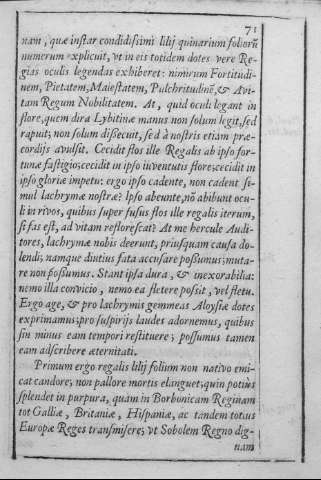 71
nam, quæ instar condidissimi lilij quinarium foliorũ
numerum explicuit, vt in eis totidem dotes vere Re-
gias oculis legendas exhiberet: nimirum Fortitudi-
nem, Pietatem, Maiestatem, Pulchritudinẽ, & Avi-
tam Regum Nobilitatem. At, quid oculi legant in
flore, quem dira Lybitinæ manus non solum legit, sed
rapuit; non solum dissecuit, sed à nostris etiam præ-
cordijs avulsit. Cecidit flos ille Regalis ab ipso for-
tunæ fastigio; cecidit in ipso iuventutis flore; cecidit in
ipso gloriæ impetu: ergo ipso cadente, non cadent si-
mul lachrymæ nostræ? Ipso abeunte, nõ abibunt ocu-
li in rivos, quibus super fusus flos ille regalis iterum,
si fas est, ad vitam reflorescat? At me hercule Audi-
tores, lachrymæ nobis deerunt, priusquam causa do-
lendi; namque diutius fata accusare possumus; muta-
re non possumus. Stant ipsa dura, & inexorabilia:
nemo illa convicio, nemo ea flectere possit, vel fletu.
Ergo age, & pro lachrymis gemmeas Aloysiæ dotes
exprimamus; pro suspirijs laudes adornemus, quibus
sin minus eam tempori restituere; possumus tamen
eam adscribere æternitati.
Primum ergo regalis lilij folium non nativo emi-
cat candore, non pallore mortis elanguet, quin potiùs
splendet in purpura, quam in Borbonicam Reginam
tot Galliæ, Britaniæ, Hispaniæ, ac tandem totius
Europæ Reges transmisere; vt Sobolem Regno dig-
nam